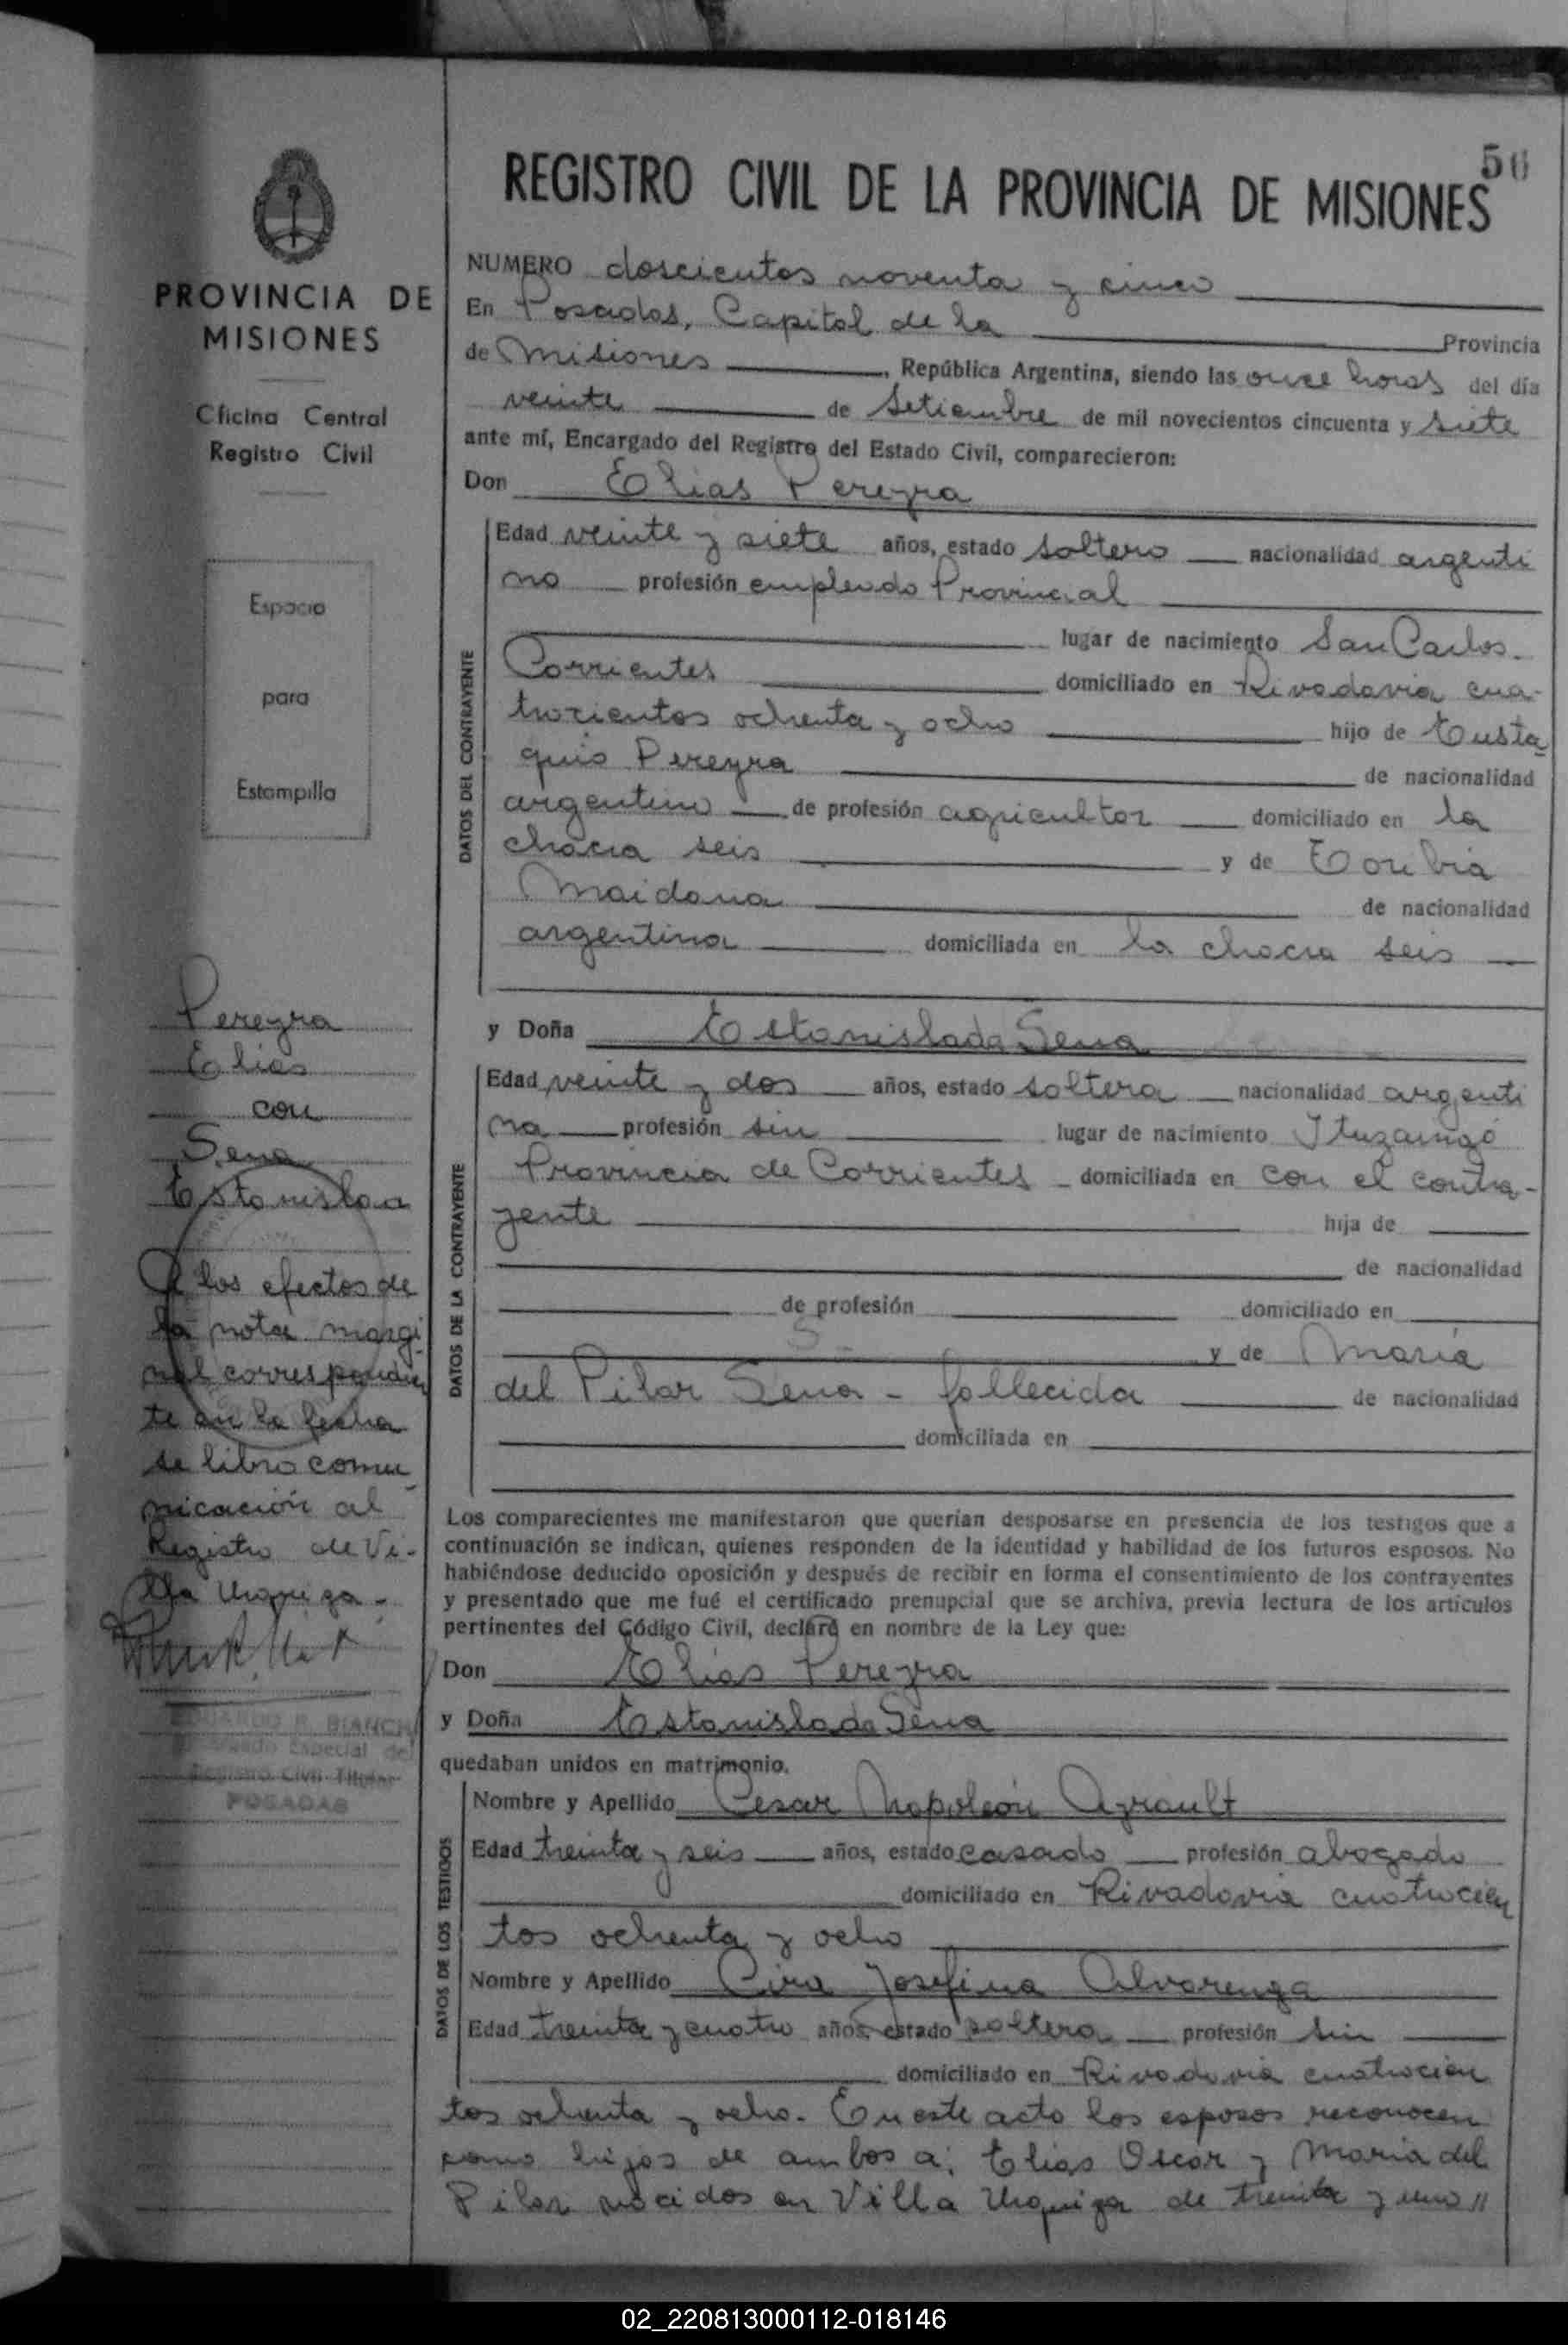 50
REGISTRO CIVIL DE LA PROVINCIA DE MISIONES
PROVINCIA DE
MISIONES
Oficina Central
Registro Civil
Espacio
para
Estampilla
Pereyra
Elias
con
Sena
Estanislaa
A los efectos de
la nota margi
nal correspondien
te en la fecha
se libro comu
nicación al
Registro de Vi-
lla Urquiza.-
EDUARDO R. BIANCHI
Especial del
Registro Civil Titular
POSADAS
NUMERO doscientos noventa y cinco
En Posadas, Capital de la Provincia
de Misiones, República Argentina, siendo las once horas del día
veinte de Setiembre de mil novecientos cincuenta y siete
ante mí, Encargado del Registro del Estado Civil, comparecieron:
Don Elias Pereyra
DATOS DEL CONTRAYENTE
Edad veinte y siete años, estado soltero nacionalidad argenti
no profesión empleado Provincial
lugar de nacimiento San Carlos.
Corrientes domiciliado en Rivadavia cua-
trocientos ochenta y ocho hijo de Eusta
quio Pereyra de nacionalidad
argentino de profesión agricultor domiciliado en la
chacra seis y de Toribia
Maidana de nacionalidad
argentina domiciliada en la chacra seis
y Doña Estanislada Sena
DATOS DE LA CONTRAYENTE
Edad veinte y dos años, estado soltera nacionalidad argenti
na profesión sin lugar de nacimiento Ituzaingó
Provincia de Corrientes - domiciliada en con el contra-
yente hija de
de nacionalidad
de profesión domiciliado en
y de Maria
del Pilar Sena - fallecida de nacionalidad
domiciliada en
Los comparecientes me manifestaron que querían desposarse en presencia de los testigos que a
continuación se indican, quienes responden de la identidad y habilidad de los futuros esposos. No
habiéndose deducido oposición y después de recibir en forma el consentimiento de los contrayentes
y presentado que me fué el certificado prenupcial que se archiva, previa lectura de los artículos
pertinentes del Código Civil, declaré en nombre de la Ley que:
Don Elias Pereyra
y Doña Estanislada Sena
quedaban unidos en matrimonio.
DATOS DE LOS TESTIGOS
Nombre y Apellido Cesar Napoleón Ayrault
Edad treinta y seis años, estado casado profesión abogado
domiciliado en Rivadavia cuatrocien
tos ochenta y ocho
Nombre y Apellido Cira Josefina Alvarenga
Edad treinta y cuatro años, estado soltera profesión sin
domiciliado en Rivadavia cuatrocien
tos ochenta y ocho. En este acto los esposos reconocen
como hijos de ambos a: Elias Oscar y Maria del
Pilar nacidos en Villa Urquiza de treinta y uno //
02_220813000112-018146